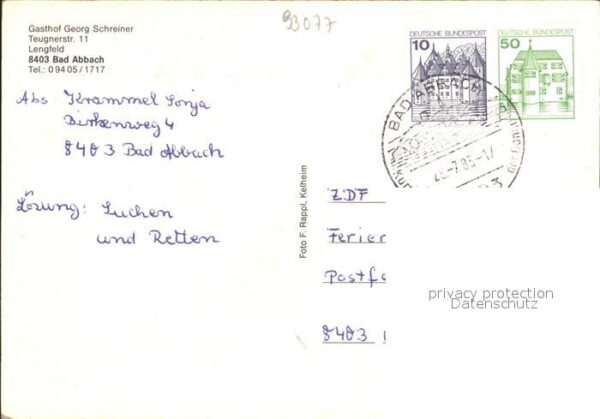 Gasthof Georg Schreiner
Teugnerstr. 11
Lengfeld
8403 Bad Abbach
Tel.: 09405/1717
93077
10 DEUTSCHE BUNDESPOST
50 DEUTSCHE BUNDESPOST
BAD ABBACH
Abs Krammel Sonja
Birkenweg 4
8403 Bad Abbach
Lösung: Suchen
und Retten
Foto F. Rappl, Kelheim
ZDF
Ferier
Postfa
8403
privacy protection
Datenschutz